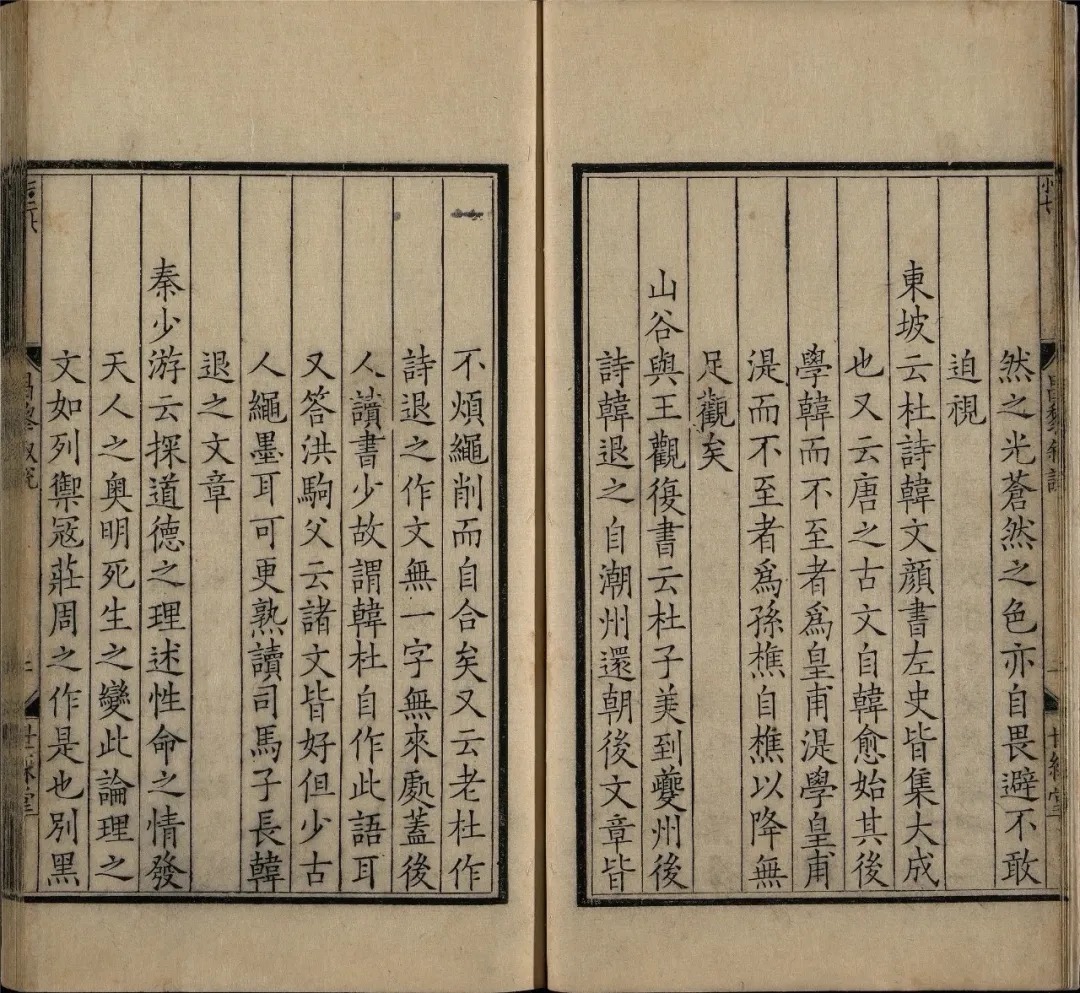 然之光蒼然之色亦自畏避不敢
迫視
東坡云杜詩韓文顏書左史皆集大成
也又云唐之古文自韓愈始其後
學韓而不至者爲皇甫湜學皇甫
湜而不至者爲孫樵自樵以降無
足觀矣
山谷與王觀復書云杜子美到夔州後
詩韓退之自潮州還朝後文章皆
不煩繩削而自合矣又云老杜作
詩退之作文無一字無來處蓋後
人讀書少故謂韓杜自作此語耳
又答洪駒父云諸文皆好但少古
人繩墨耳可更熟讀司馬子長韓
退之文章
秦少游云探道德之理述性命之情發
天人之奧明死生之變此論理之
文如列禦寇莊周之作是也別黑